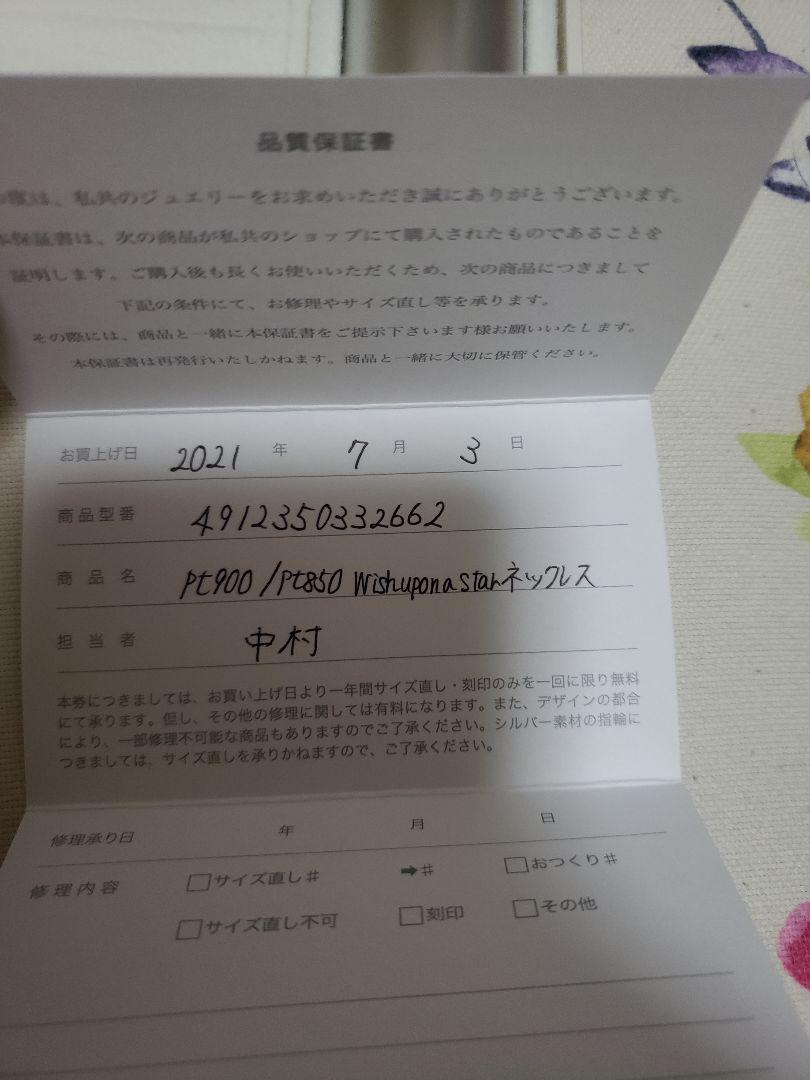 品質保証書
は、私共のジュエリーをお求めいただき誠にありがとうございます。
本保証書は、次の商品が私共のショップにて購入されたものであることを
証明します。ご購入後も長くお使いいただくため、次の商品につきまして
下記の条件にて、お修理やサイズ直し等を承ります。
その際には、商品と一緒に本保証書をご提示下さいます様お願いいたします。
本保証書は再発行いたしかねます。商品と一緒に大切に保管ください。
お買上げ日 2021 年 7 月 3 日
商品型番 4912350332662
商品名 Pt900/Pt850 Wish upon a starネックレス
担当者 中村
本券につきましては、お買い上げ日より一年間サイズ直し・刻印のみを一回に限り無料
にて承ります。但し、その他の修理に関しては有料になります。また、デザインの都合
により、一部修理不可能な商品もありますのでご了承ください。シルバー素材の指輪に
つきましては、サイズ直しを承りかねますので、ご了承ください。
修理承り日 年 月 日
修理内容 □サイズ直し# ➡# □おつくり#
□サイズ直し不可 □刻印 □その他